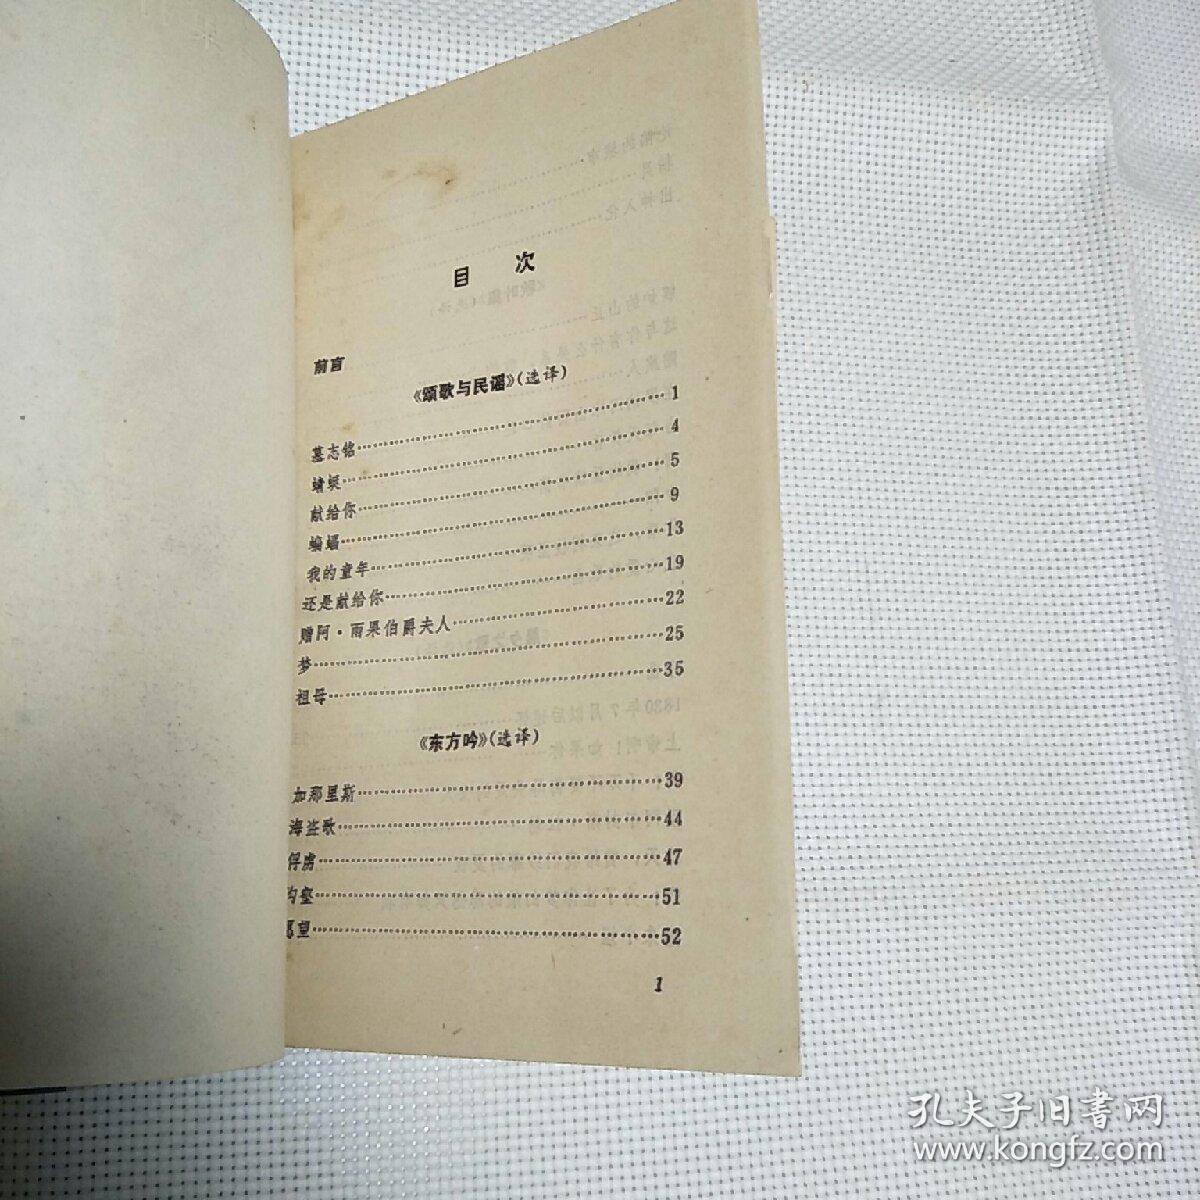 目 次
前言
《颂歌与民谣》(选译)
墓志铭 1
蜻蜓 4
献给你 5
蝙蝠 9
我的童年 13
还是献给你 19
赠阿·雨果伯爵夫人 22
梦 25
祖母 35
《东方吟》(选译)
加那里斯 39
海盗歌 44
俘虏 47
51
愿望 52
1
孔夫子旧书网
www.kongfz.com